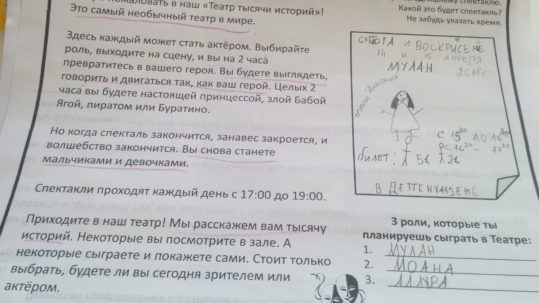 пожаловать в наш «Театр тысячи историй»!
Это самый необычный театр в мире.
Здесь каждый может стать актёром. Выбирайте
роль, выходите на сцену, и вы на 2 часа
превратитесь в вашего героя. Вы будете выглядеть,
говорить и двигаться так, как ваш герой. Целых 2
часа вы будете настоящей принцессой, злой Бабой
Ягой, пиратом или Буратино.
Но когда спекталь закончится, занавес закроется, и
волшебство закончится. Вы снова станете
мальчиками и девочками.
Спектакли проходят каждый день с 17:00 до 19:00.
Приходите в наш театр! Мы расскажем вам тысячу
историй. Некоторые вы посмотрите в зале. А
некоторые сыграете и покажете сами. Стоит только
выбрать, будете ли вы сегодня зрителем или
актёром.
спектаклю.
Какой это будет спектакль?
Не забудь указать время.
СУББОТА И ВОСКРИСЕНЕ
14 и 15 АПРЕЛЯ
МУЛАН 2018г.
С 15
билет: 5€ 2€
В ДЕТГЕНХАУЗЕНЕ
3 роли, которые ты
планируешь сыграть в Театре:
1. МУЛАН
2. МОАНА
3.